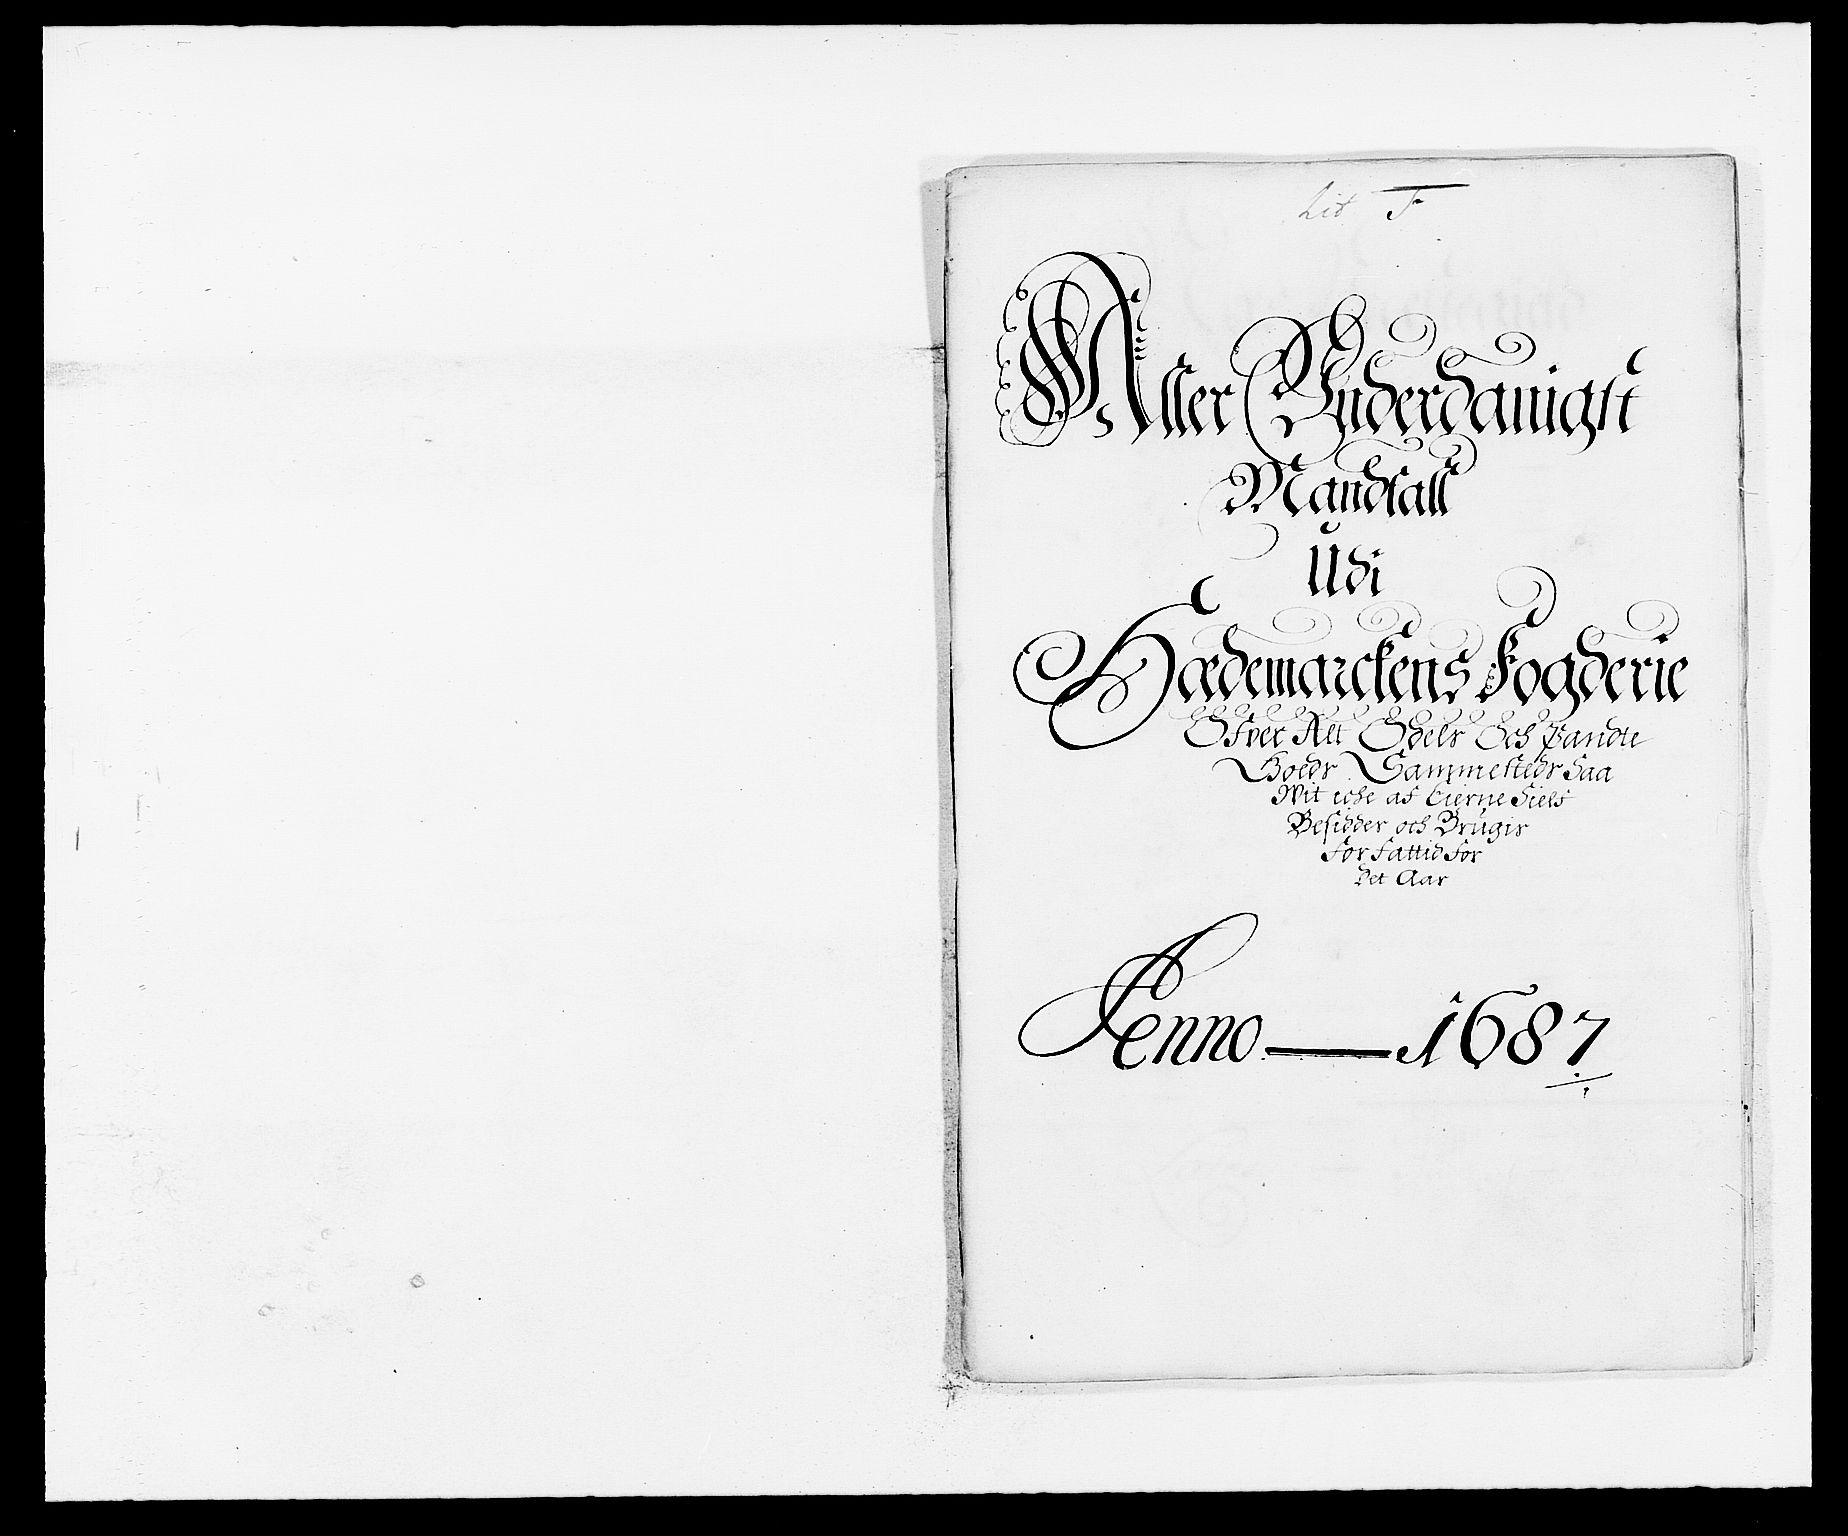 Lit F
Aller Underdanigst
Mandtall
Udi
Hædemarckens Fogderie
Ofver Alt Odels Och Pandte
Goeds Sammesteds Saa
Wit iche af Eierne Siels
Besidder och Brugis
For Fattid for
Det Aar
Anno 1687